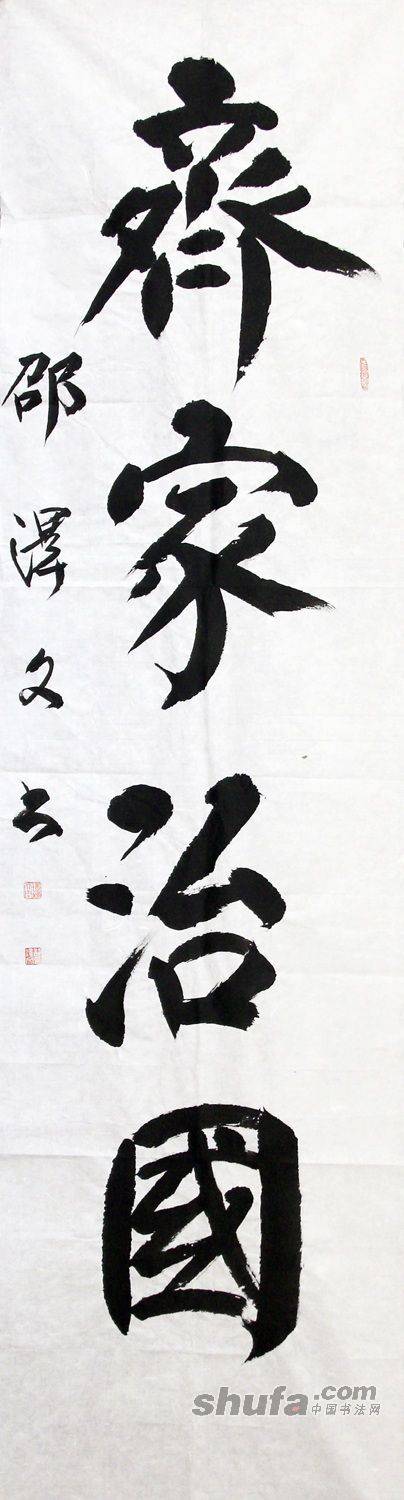 齊家治國
邵澤文书
shufa.com
中国书法网